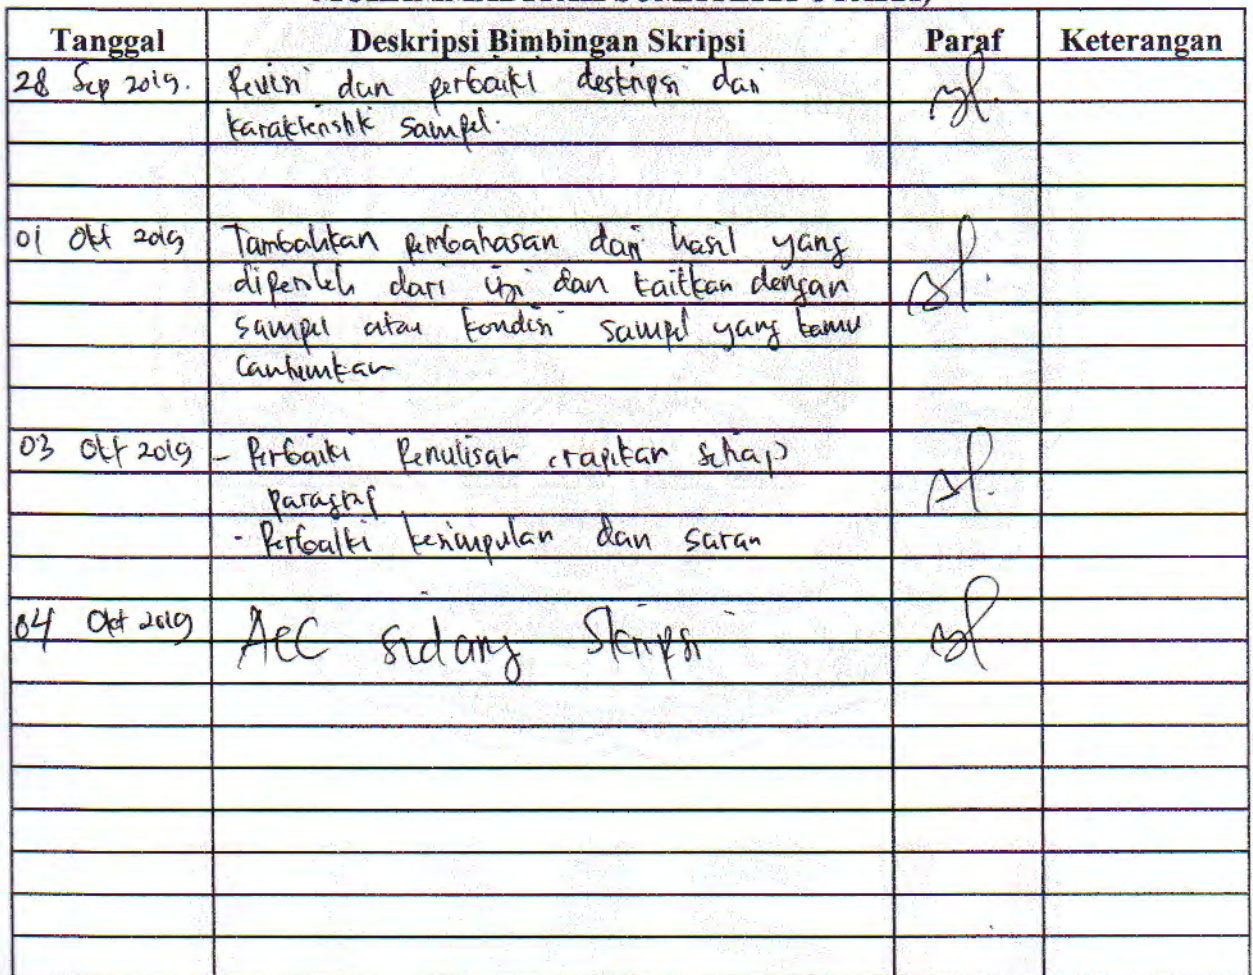 Tanggal Deskripsi Bimbingan Skripsi Paraf Keterangan
28 Sep 2019. Revisi dan perbaiki deskripsi dan
karakteristik sampel.
01 Okt 2019 Tambahkan pembahasan dari hasil yang
diperoleh dari uji dan kaitkan dengan
sampel atau kondisi sampel yang kamu
cantumkan
03 Okt 2019 - Perbaiki Penulisan, rapikan setiap
paragraf
- Perbaiki kesimpulan dan saran
04 Okt 2019 ACC sidang Skripsi